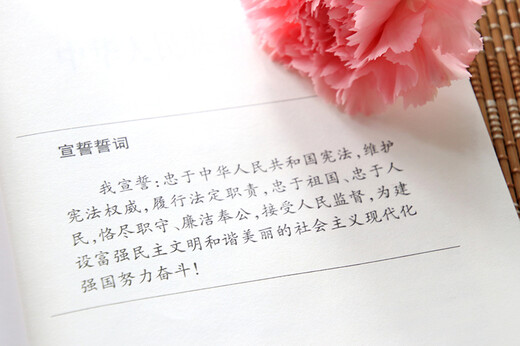 宣誓誓词
我宣誓：忠于中华人民共和国宪法，维护
宪法权威，履行法定职责，忠于祖国、忠于人
民，恪尽职守、廉洁奉公，接受人民监督，为建
设富强民主文明和谐美丽的社会主义现代化
强国努力奋斗！